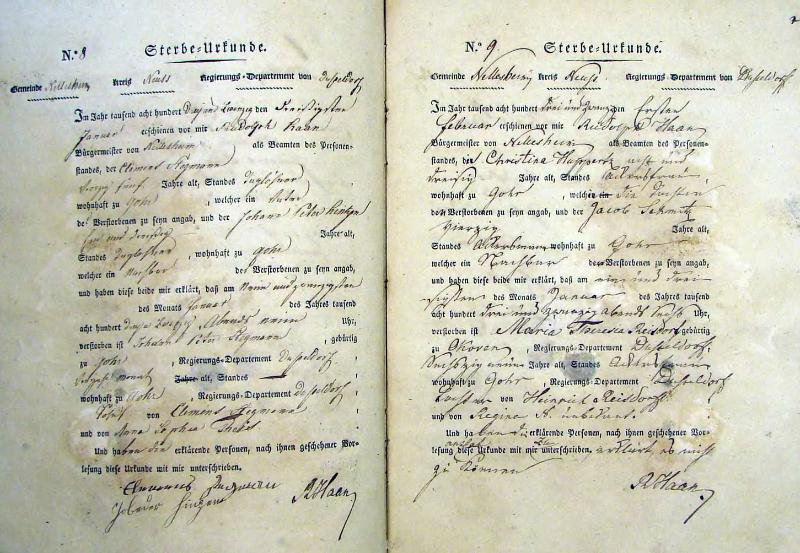 N.º 8 Sterbe-Urkunde.
Gemeinde Nettesheim Kreis Neuss Regierungs-Departement von Dusseldorf
Im Jahr tausend acht hundert Drey und Zwanzig den Dreißigsten
Januar erschienen vor mir Reudolph Haan
Bürgermeister von Nettesheim als Beamten des Personen-
standes, der Clemens
vierzig fünf Jahre alt, Standes Taglöhner
wohnhaft zu Gohr, welcher ein Vater
des Verstorbenen zu seyn angab, und der Johann Peter
und Dreißig Jahre alt,
Standes Taglöhner, wohnhaft zu Gohr
welcher ein Nachbar des Verstorbenen zu seyn angab,
und haben diese beide mir erklärt, daß am Neun und zwanzigsten
des Monats Januar des Jahres tausend
acht hundert Drey Zwanzig Abends neun Uhr,
verstorben ist Johann Peter, gebürtig
zu Gohr, Regierungs-Departement Dusseldorf
Jahre alt, Standes
wohnhaft zu Gohr Regierungs-Departement Dusseldorf
Sohn von Clemens
und von Anna Sophia
Und haben die erklärende Personen, nach ihnen geschehener Vor-
lesung diese Urkunde mit mir unterschrieben.
RHaan
N.º 9. Sterbe-Urkunde.
Gemeinde Nettesheim Kreis Neuss Regierungs-Departement von Dusseldorf
Im Jahr tausend acht hundert drei und zwanzig den Ersten
Februar erschienen vor mir Reudolph Haan
Bürgermeister von Nettesheim als Beamten des Personen-
standes, der Christina Huppertz acht und
dreisig Jahre alt, Standes Ackersfrau
wohnhaft zu Gohr, welche ein die
des Verstorbenen zu seyn angab, und der Jacob Schmitz
vierzig Jahre alt,
Standes Ackersmann wohnhaft zu Gohr
welcher ein Nachbar der Verstorbenen zu seyn angab,
und haben diese beide mir erklärt, daß am ein und drei-
sigsten des Monats Januar des Jahres tausend
acht hundert drei und zwanzig abends sechs Uhr,
verstorben ist Maria Theresia Reisdorf gebürtig
zu, Regierungs-Departement Dusseldorf,
Sechszig neun Jahre alt, Standes
wohnhaft zu Gohr, Regierungs-Departement Dusseldorf
Tochter von Heinrich Reisdorf
und von Regina N. unbekant.
Und haben die erklärende Personen, nach ihnen geschehener Vor-
lesung diese Urkunde mit mir unterschrieben. erklärt es nicht
zu können
RHaan